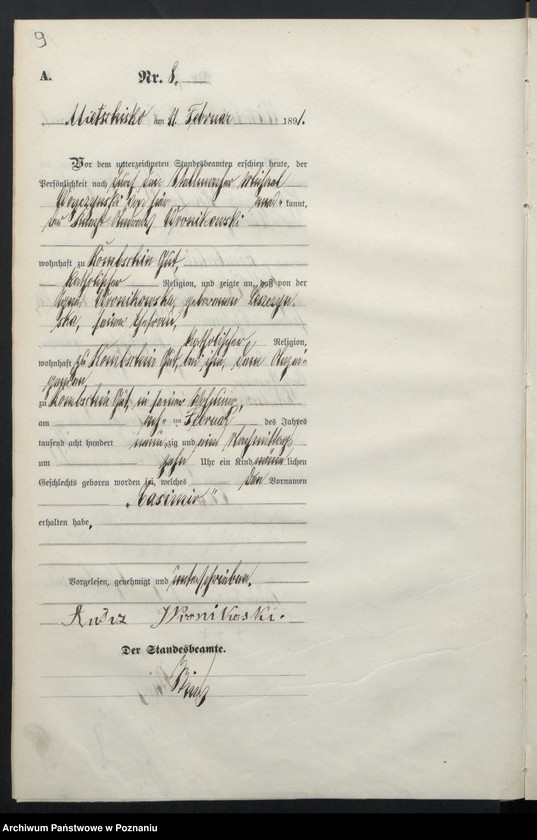 9
A.
Nr. 8.
Mietschisko am 11. Februar 1891.
Vor dem unterzeichneten Standesbeamten erschien heute, der
Persönlichkeit nach durch den Stellmacher Michael
kannt,
der Knecht Wronikowski
wohnhaft zu Gut,
katholischer Religion, und zeigte an, daß von der
Wronikowska, geborenen
seiner Ehefrau,
katholischer Religion,
wohnhaft zu Gut, bei ihm, dem
zu Gut, in seiner Wohnung,
am Februar des Jahres
tausend acht hundert neunzig und ein Nachmittags
um zehn Uhr ein Kind männlichen
Geschlechts geboren worden sei, welches den Vornamen
„Casimir"
erhalten habe.
Vorgelesen, genehmigt und unterschrieben.
Wronikoski.
Der Standesbeamte.
Archiwum Państwowe w Poznaniu